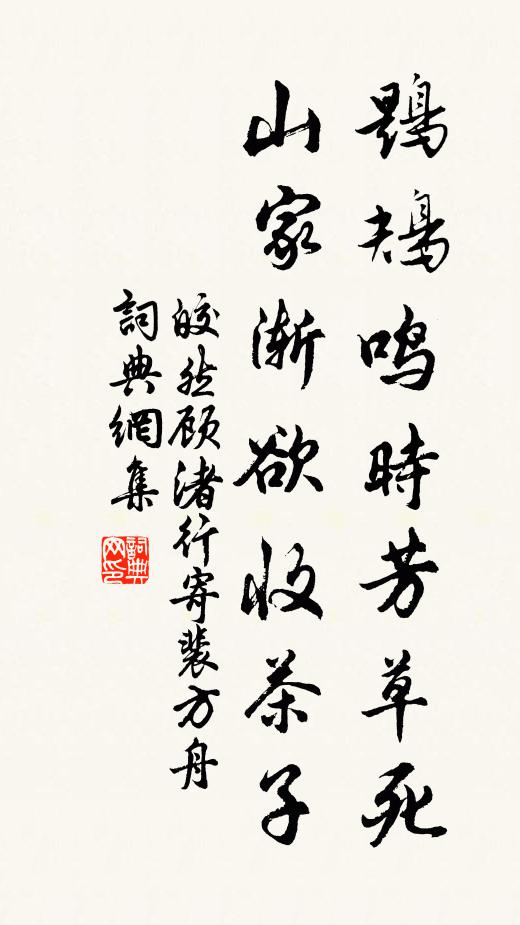 鶗鴂鳴時芳草死
山家漸欲收茶子
皎然顧渚行寄裴方舟
詞典網集
詞典網印